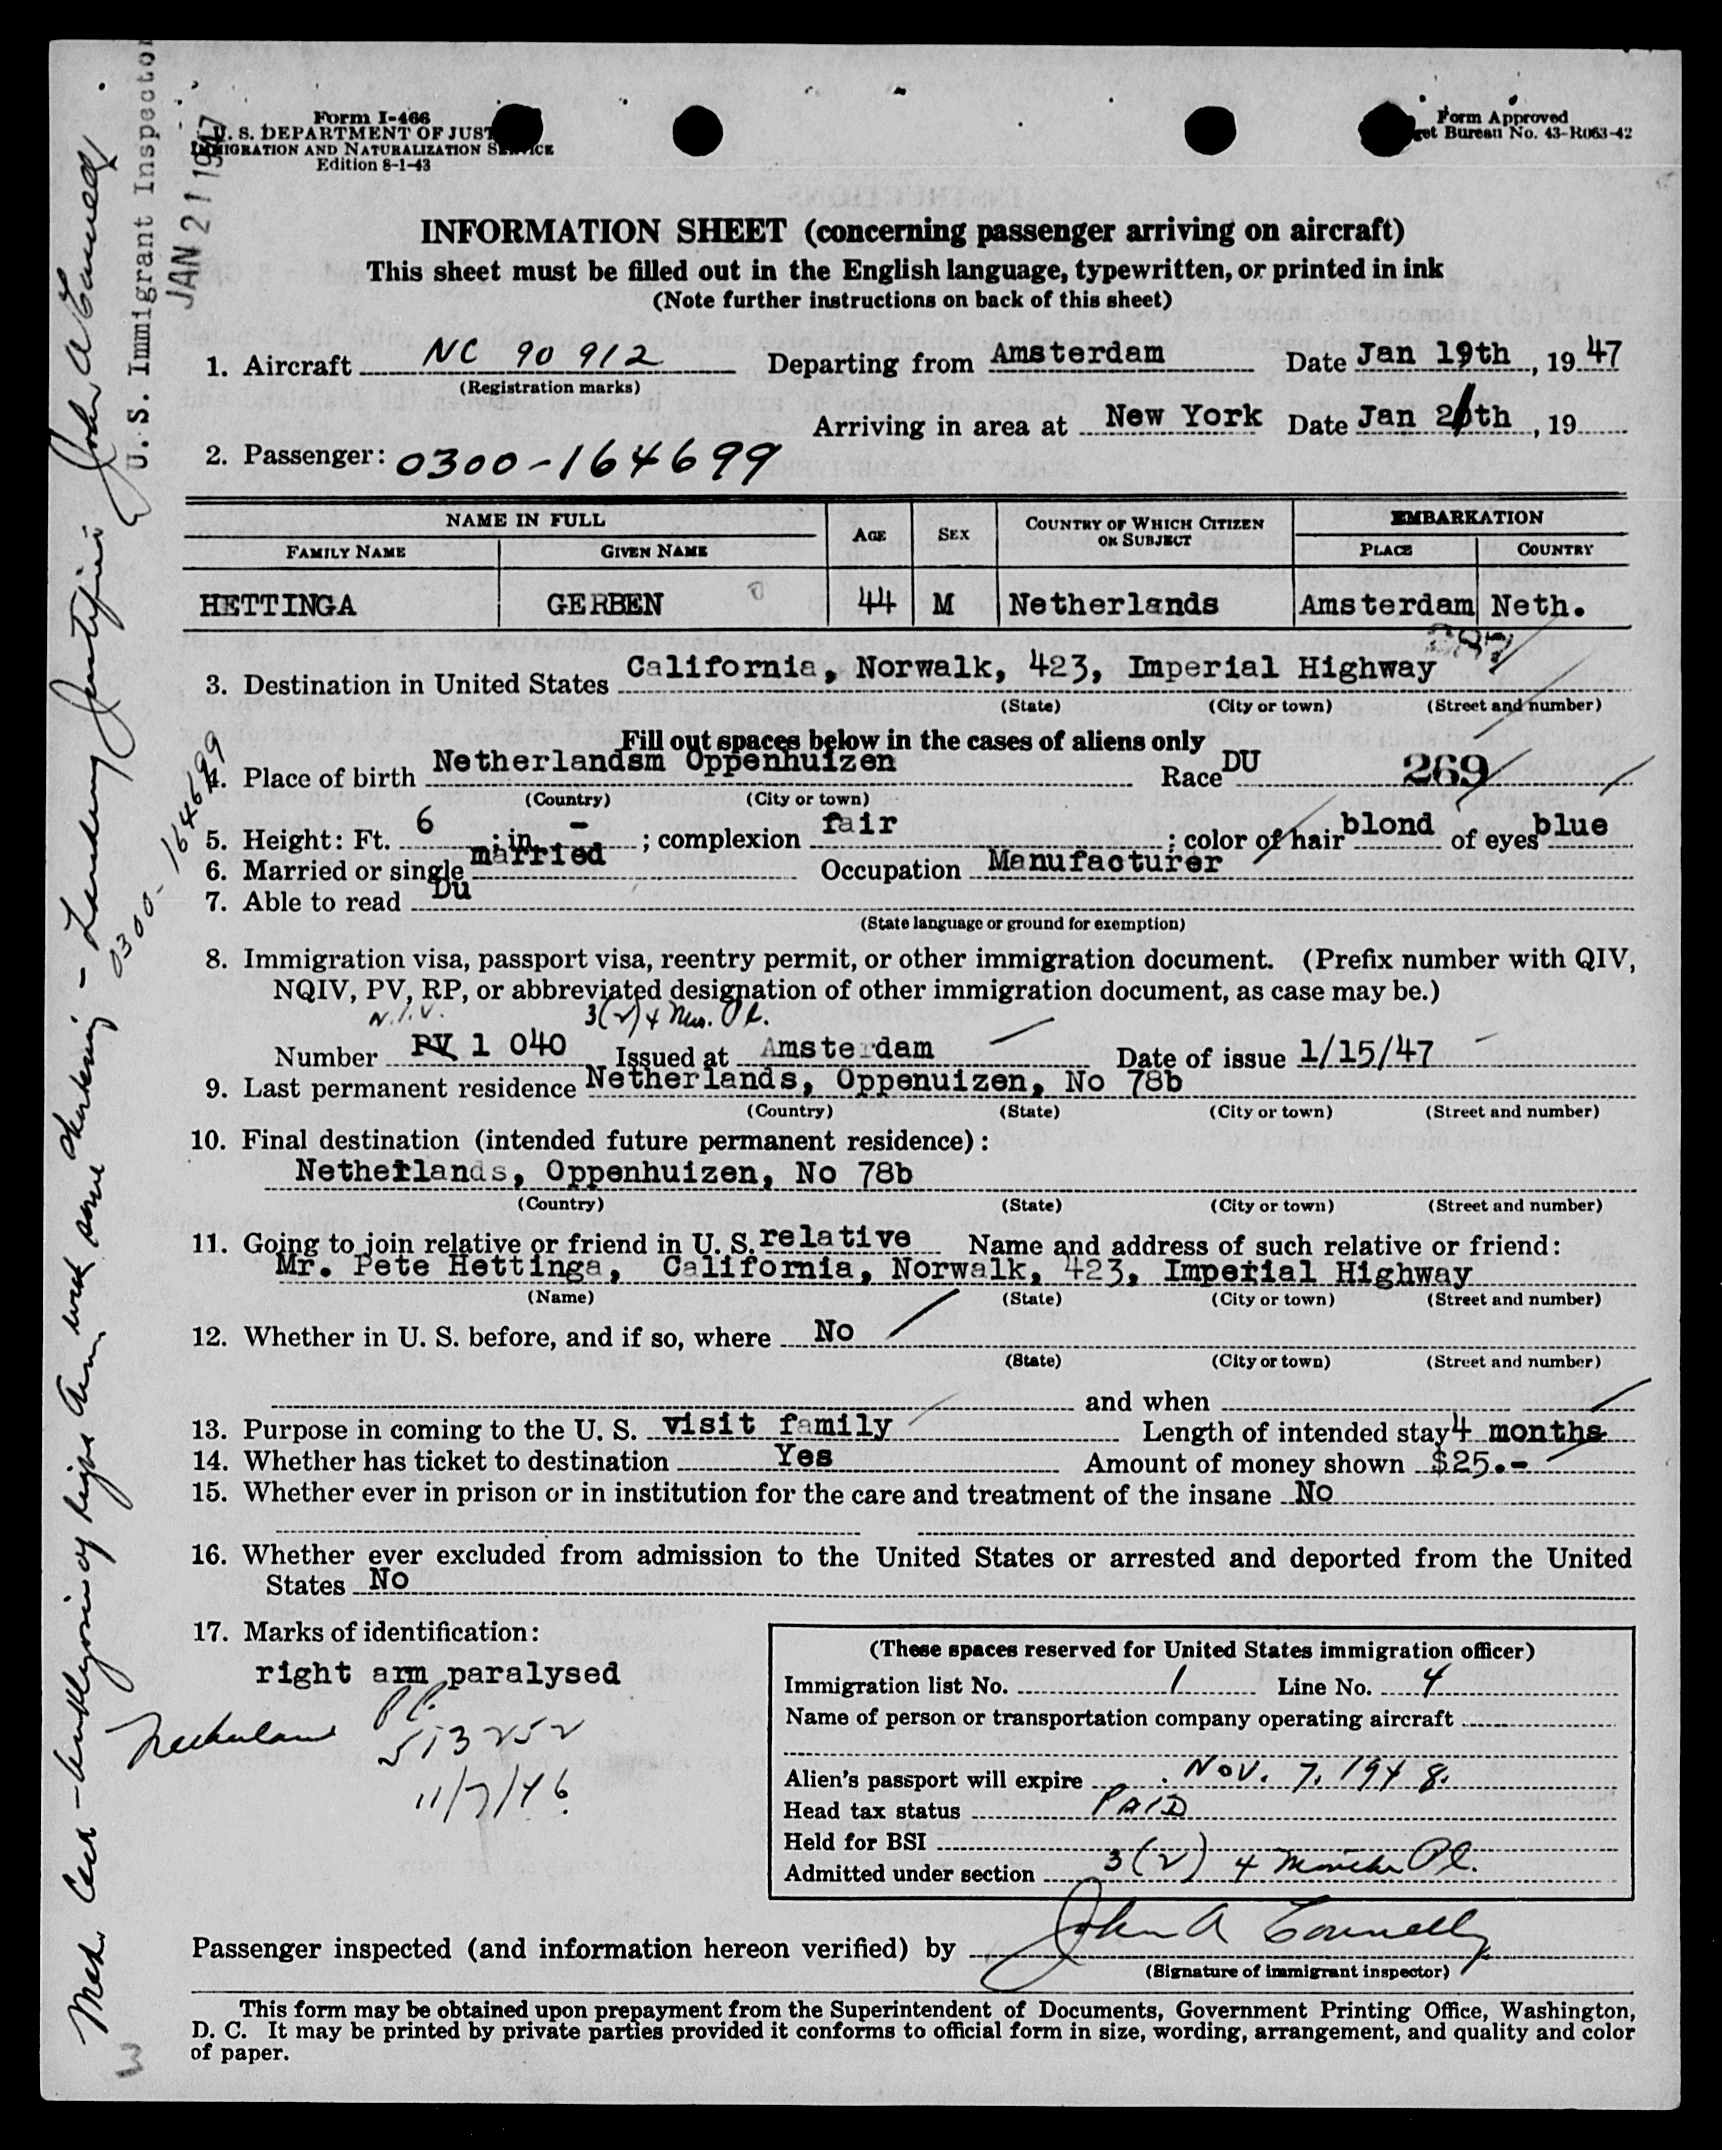 Form I-466
U. S. DEPARTMENT OF JUST
IMMIGRATION AND NATURALIZATION SERVICE
Edition 8-1-43
Form Approved
get Bureau No. 43-R063-42
JAN 21 1947
U. S. Immigrant Inspector
INFORMATION SHEET (concerning passenger arriving on aircraft)
This sheet must be filled out in the English language, typewritten, or printed in ink
(Note further instructions on back of this sheet)
1. Aircraft NC 90 912 Departing from Amsterdam Date Jan 19th, 19 47
(Registration marks)
Arriving in area at New York Date Jan 21th, 19
2. Passenger: 0300-164699
NAME IN FULL AGE SEX COUNTRY OF WHICH CITIZEN OR SUBJECT EMBARKATION
FAMILY NAME GIVEN NAME PLACE COUNTRY
HETTINGA GERBEN 44 M Netherlands Amsterdam Neth.
3. Destination in United States California, Norwalk, 423, Imperial Highway
(State) (City or town) (Street and number)
Fill out spaces below in the cases of aliens only
4. Place of birth Netherlandsm Oppenhuizen Race DU 269
(Country) (City or town)
5. Height: Ft. 6 ; in. - ; complexion fair ; color of hair blond of eyes blue
6. Married or single married Occupation Manufacturer
7. Able to read Du
(State language or ground for exemption)
8. Immigration visa, passport visa, reentry permit, or other immigration document. (Prefix number with QIV,
NQIV, PV, RP, or abbreviated designation of other immigration document, as case may be.)
N.I.V. 3(2) 4 Mos. Pl.
Number PV 1 040 Issued at Amsterdam Date of issue 1/15/47
9. Last permanent residence Netherlands, Oppenuizen, No 78b
(Country) (State) (City or town) (Street and number)
10. Final destination (intended future permanent residence):
Netherlands, Oppenhuizen, No 78b
(Country) (State) (City or town) (Street and number)
11. Going to join relative or friend in U. S. relative Name and address of such relative or friend:
Mr. Pete Hettinga, California, Norwalk, 423, Imperial Highway
(Name) (State) (City or town) (Street and number)
12. Whether in U. S. before, and if so, where No
(State) (City or town) (Street and number)
and when
13. Purpose in coming to the U. S. visit family Length of intended stay 4 months
14. Whether has ticket to destination Yes Amount of money shown $25.-
15. Whether ever in prison or in institution for the care and treatment of the insane No
16. Whether ever excluded from admission to the United States or arrested and deported from the United
States No
17. Marks of identification:
right arm paralysed
P.P.
513252
11/7/46
(These spaces reserved for United States immigration officer)
Immigration list No. 1 Line No. 4
Name of person or transportation company operating aircraft
Alien's passport will expire Nov. 7. 1948.
Head tax status PAID
Held for BSI
Admitted under section 3(2) 4 Months Pl.
Passenger inspected (and information hereon verified) by John A Connelly
(Signature of immigrant inspector)
This form may be obtained upon prepayment from the Superintendent of Documents, Government Printing Office, Washington,
D. C. It may be printed by private parties provided it conforms to official form in size, wording, arrangement, and quality and color
of paper.
Med. Cert - right arm with some shortening - Landing
John A Connelly
0300-164699